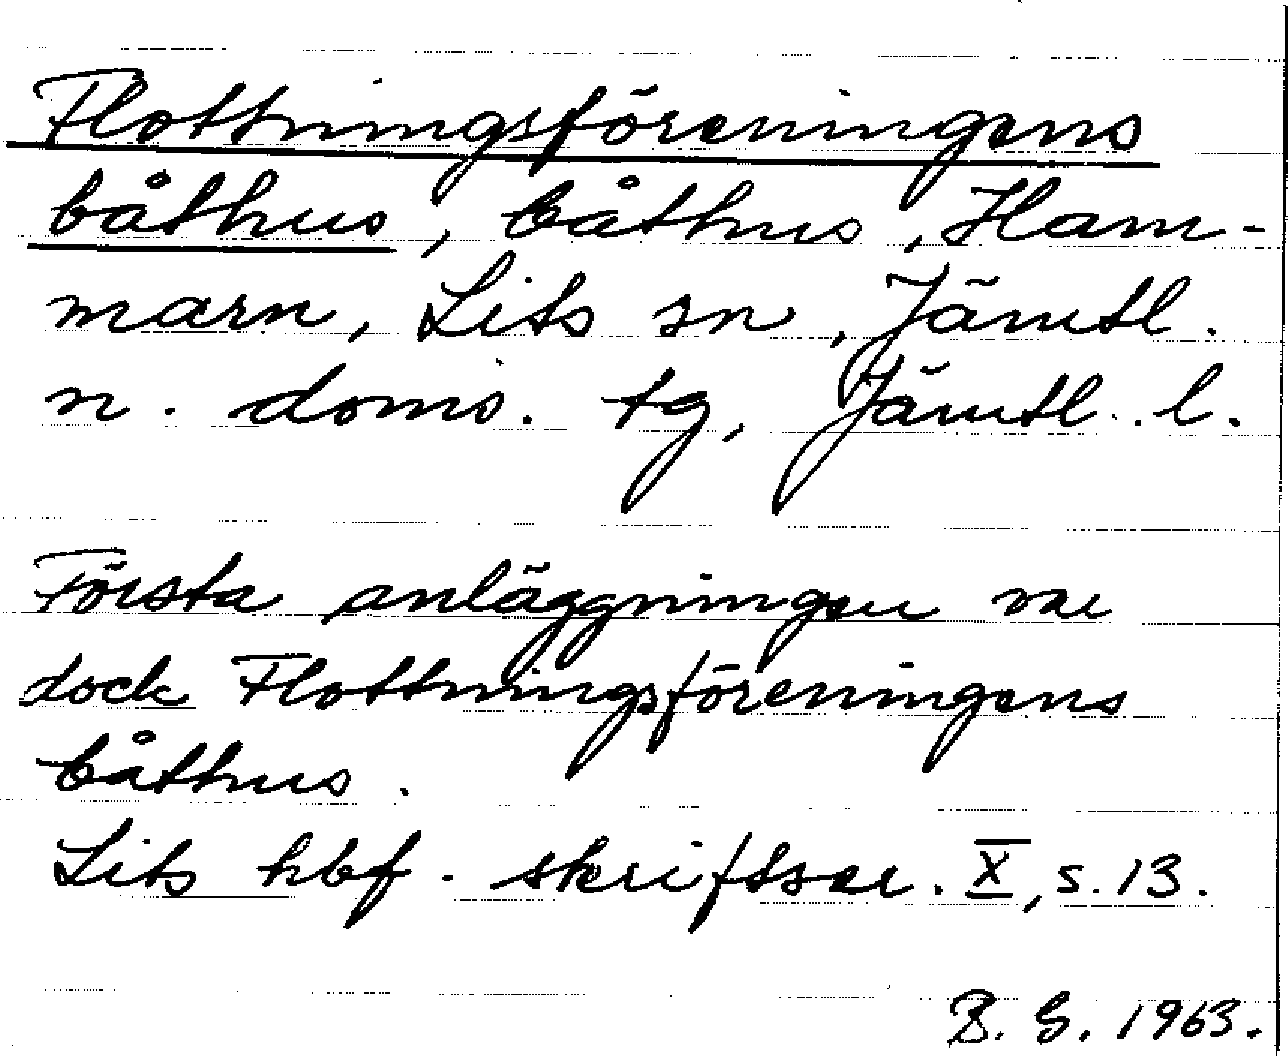 Flottningsföreningens
båthus, båthus, Ham-
marn, Lits sn, Jämtl.
n. doms. tg, Jämtl. l.
Första anläggningen var
dock Flottningsföreningens
båthus.
Lits hbf. skriftser. X, s. 13.
B. G. 1963.